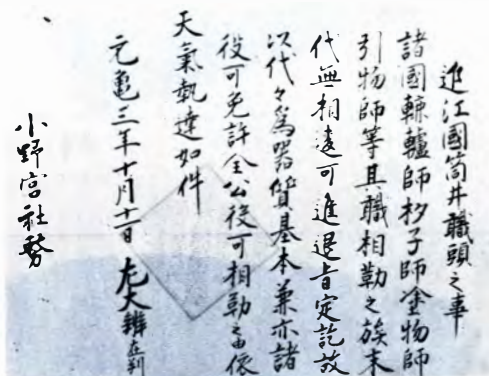 近江國筒井職頭之事
諸國轆轤師杓子師塗物師
引物師等其職相勤之族末
代無相違可進退旨定訖故
以代々為器質基本兼亦諸
役可免許全公役可相勤之由依
天氣執達如件
元亀三年十月十一日 左大辨在判
小野宮社務